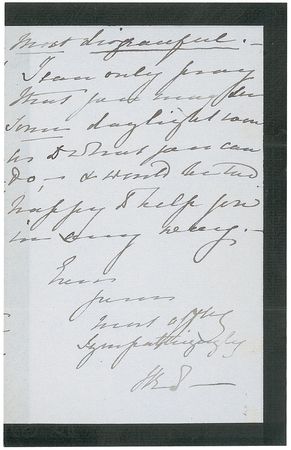 most disgraceful. —
I can only pray
that you may see
some daylight soon
as to what you can
do, — & would be too
happy to help you
in any way. —
Ever
yours
most
Sympathizingly